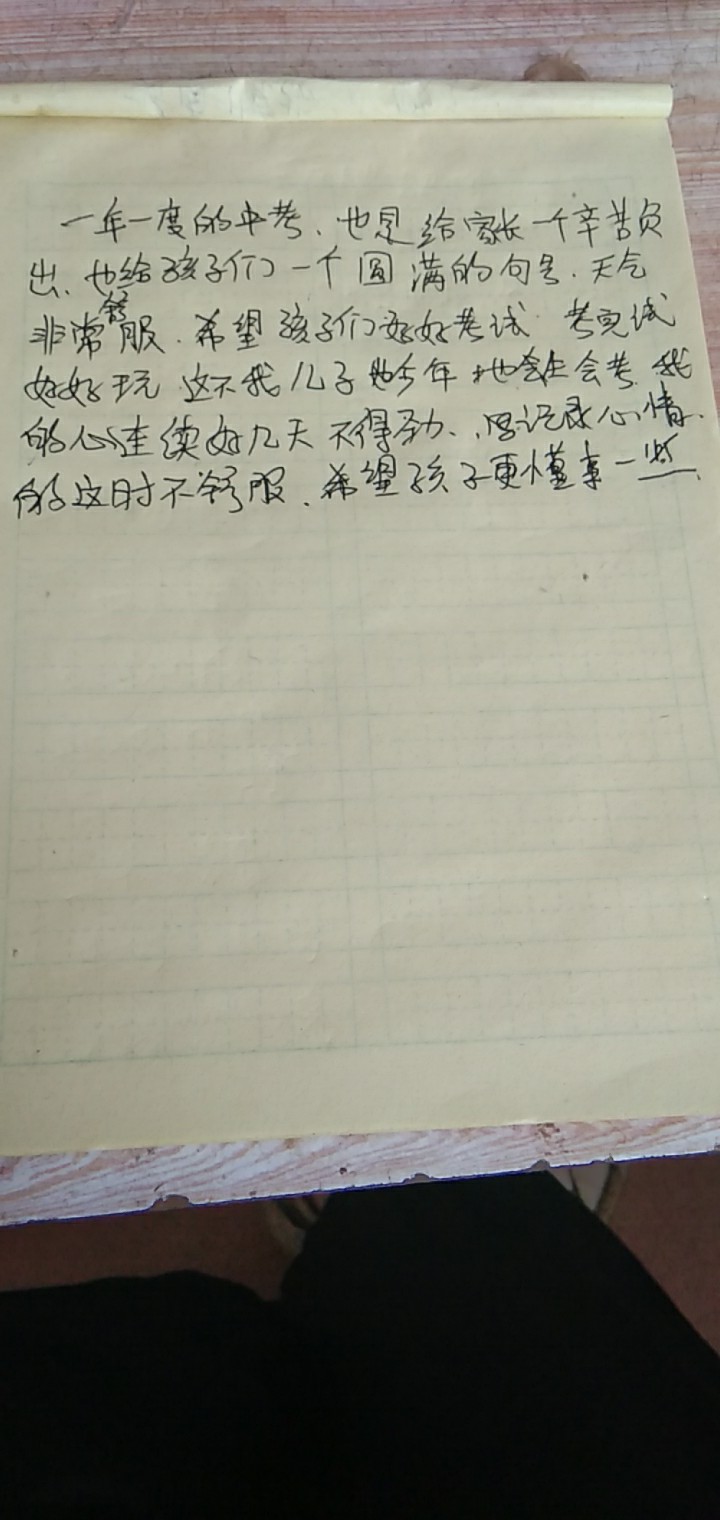 一年一度的中考、也是给家长一个辛苦负
出、也给孩子们一个圆满的句号.天气
非常舒服.希望孩子们好好考试 考完试
好好玩 这不我儿子 今年 地会生会考.我
的心连续好几天不得劲、记录心情.
的这时不舒服.希望孩子更懂事一些.